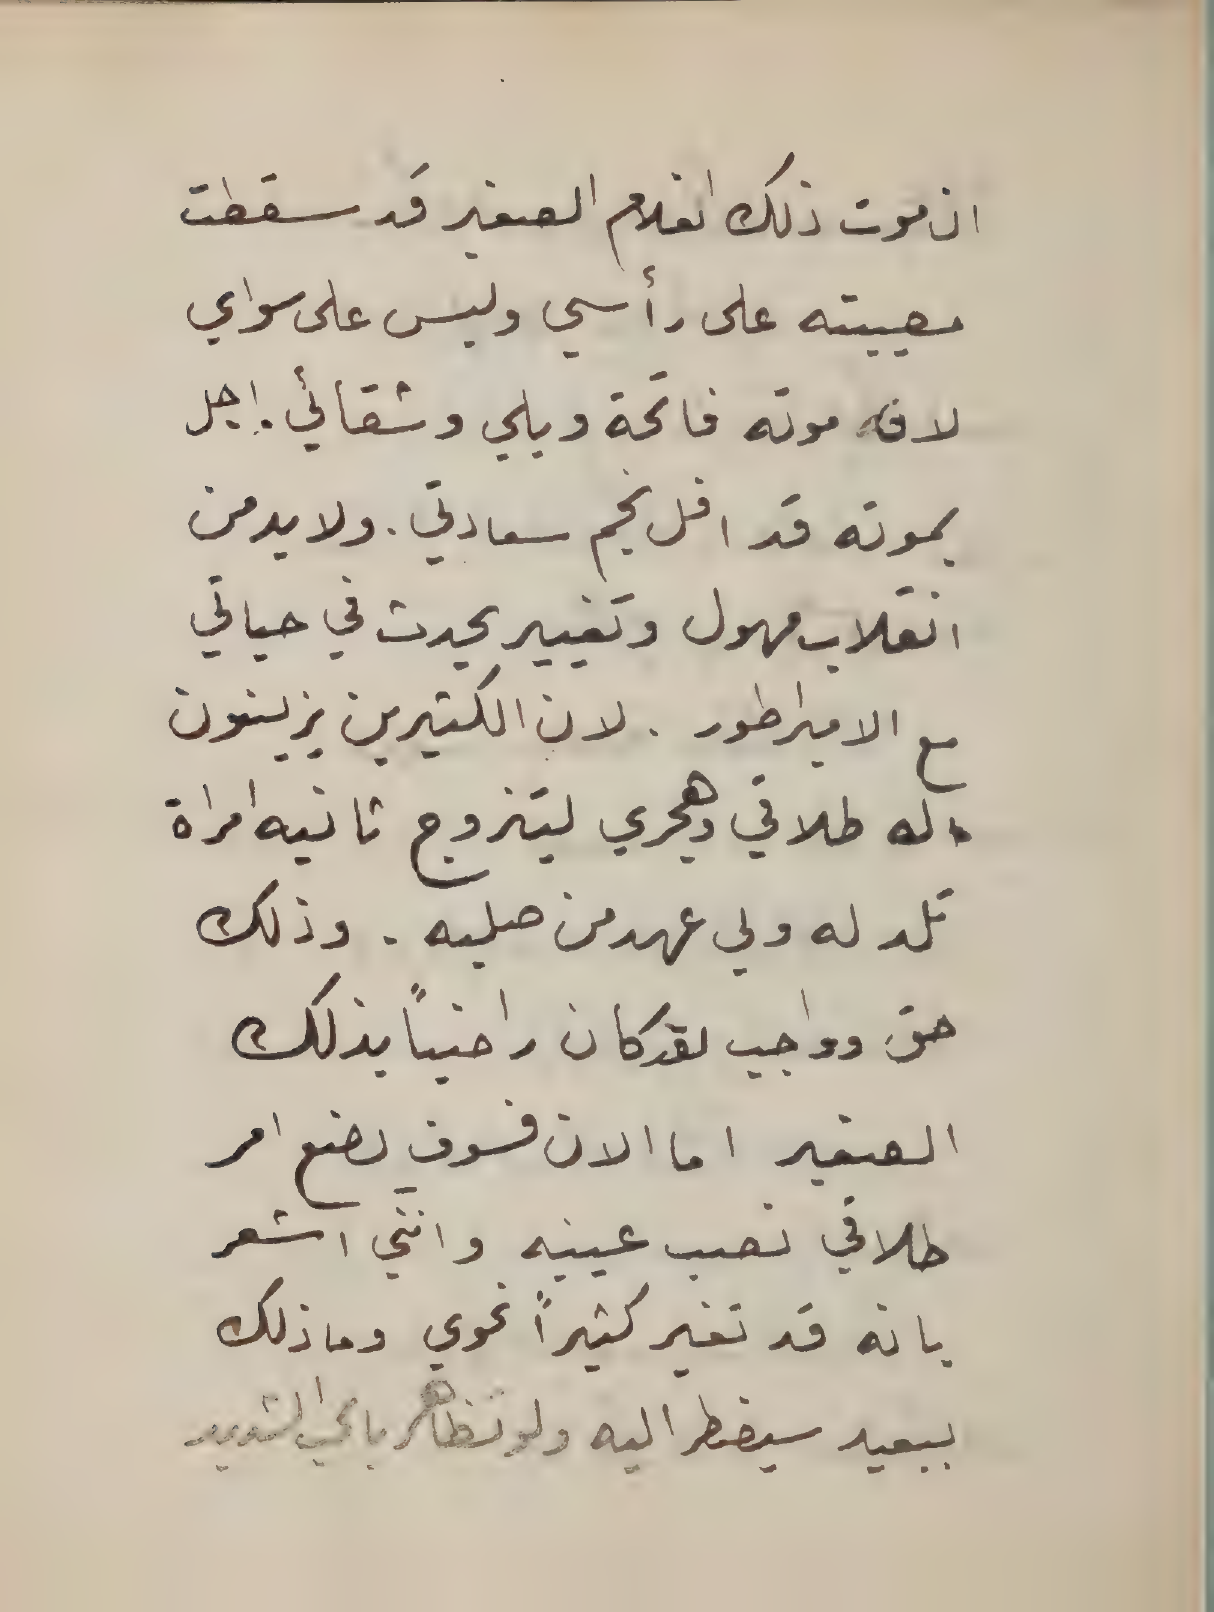 ان موت ذلك الغلام الصغير قد سقطت
مصيبته على رأسي وليس على سواي
لافه موته فاتحة ويلي وشقائي. اجل
بموته قد افل نجم سعادتي. ولا بد من
انقلاب مهول وتغيير يحدث في حياتي
مع الامبراطور. لان الكثيرين يزينون
له طلاقي وهجري ليتزوج ثانيه امراة
تلد له ولي عهد من صلبه. وذلك
حق وواجب لقد كان راضياً بذلك
الصغير اما الان فسوف يضع امر
طلاقي نصب عينيه وانني اشعر
بانه قد تغير كثيراً نحوي وما ذلك
ببعيد سيضطر اليه ولو تظاهر بالحب الشديد